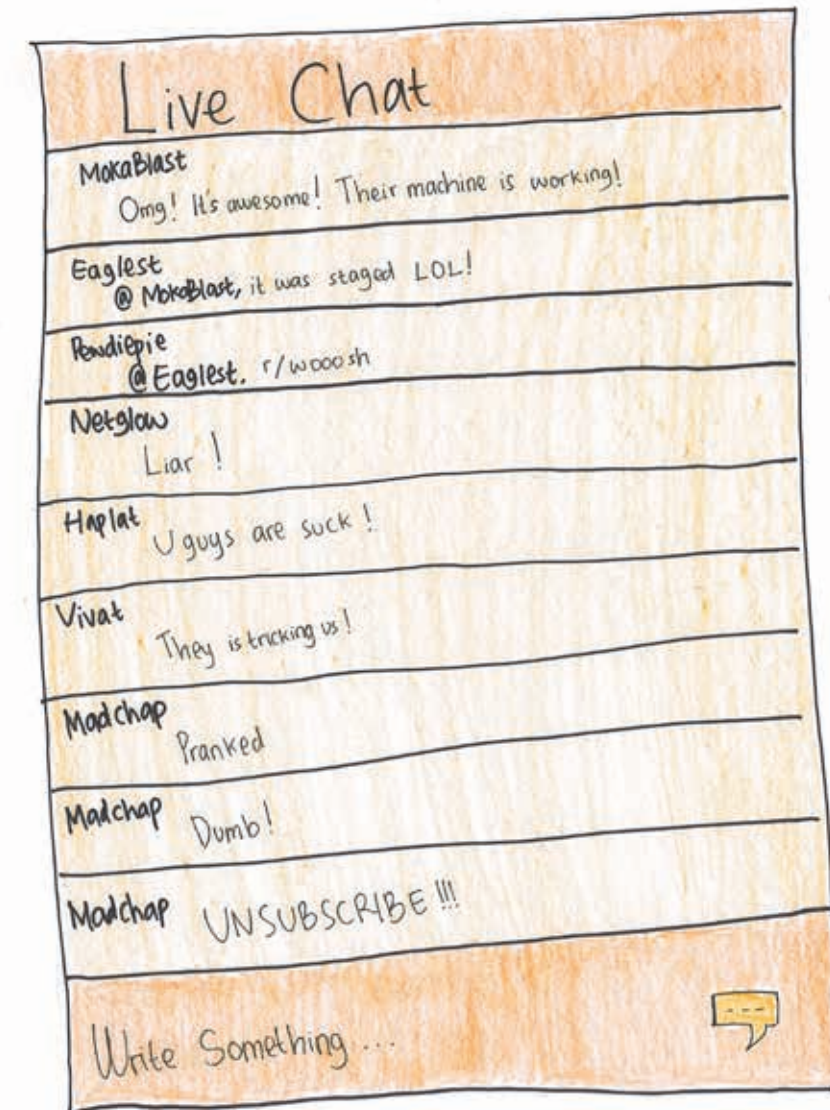 Live Chat
MokaBlast
Omg! It's awesome! Their machine is working!
Eaglest
@ MokaBlast, it was staged LOL!
Pewdiepie
@ Eaglest. r/wooosh
Netglow
Liar !
Haplat
U guys are suck !
Vivat
They is tricking us !
Madchap
Pranked
Madchap
Dumb!
Madchap
UNSUBSCRIBE !!!
Write Something ...